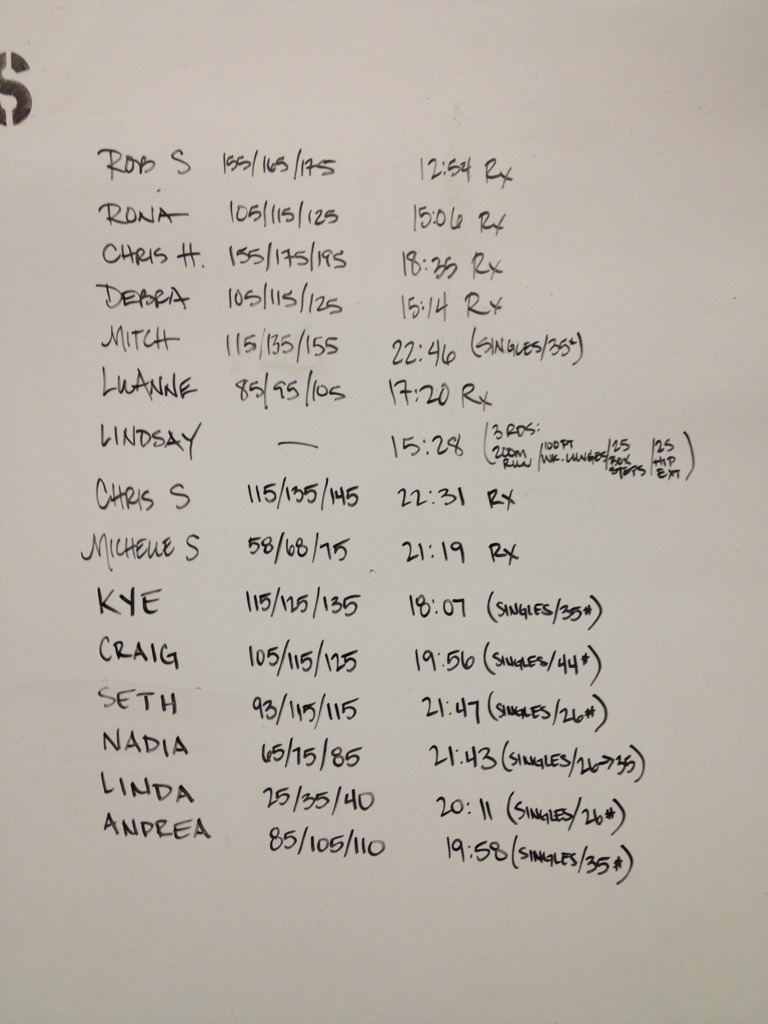 S
ROB S 155/165/175 12:54 Rx
RONA 105/115/125 15:06 Rx
CHRIS H. 155/175/195 18:35 Rx
DEBRA 105/115/125 15:14 Rx
MITCH 115/135/155 22:46 (SINGLES/35#)
LUANNE 85/95/105 17:20 Rx
LINDSAY — 15:28 (3 RDS: 200M RUN/100FT WK. LUNGES/25 BOX STEPS/25 HIP EXT)
CHRIS S 115/135/145 22:31 Rx
MICHELLE S 58/68/75 21:19 Rx
KYE 115/125/135 18:07 (SINGLES/35#)
CRAIG 105/115/125 19:56 (SINGLES/44#)
SETH 93/115/115 21:47 (SINGLES/26#)
NADIA 65/75/85 21:43 (SINGLES/26→35)
LINDA 25/35/40 20:11 (SINGLES/26#)
ANDREA 85/105/110 19:58 (SINGLES/35#)